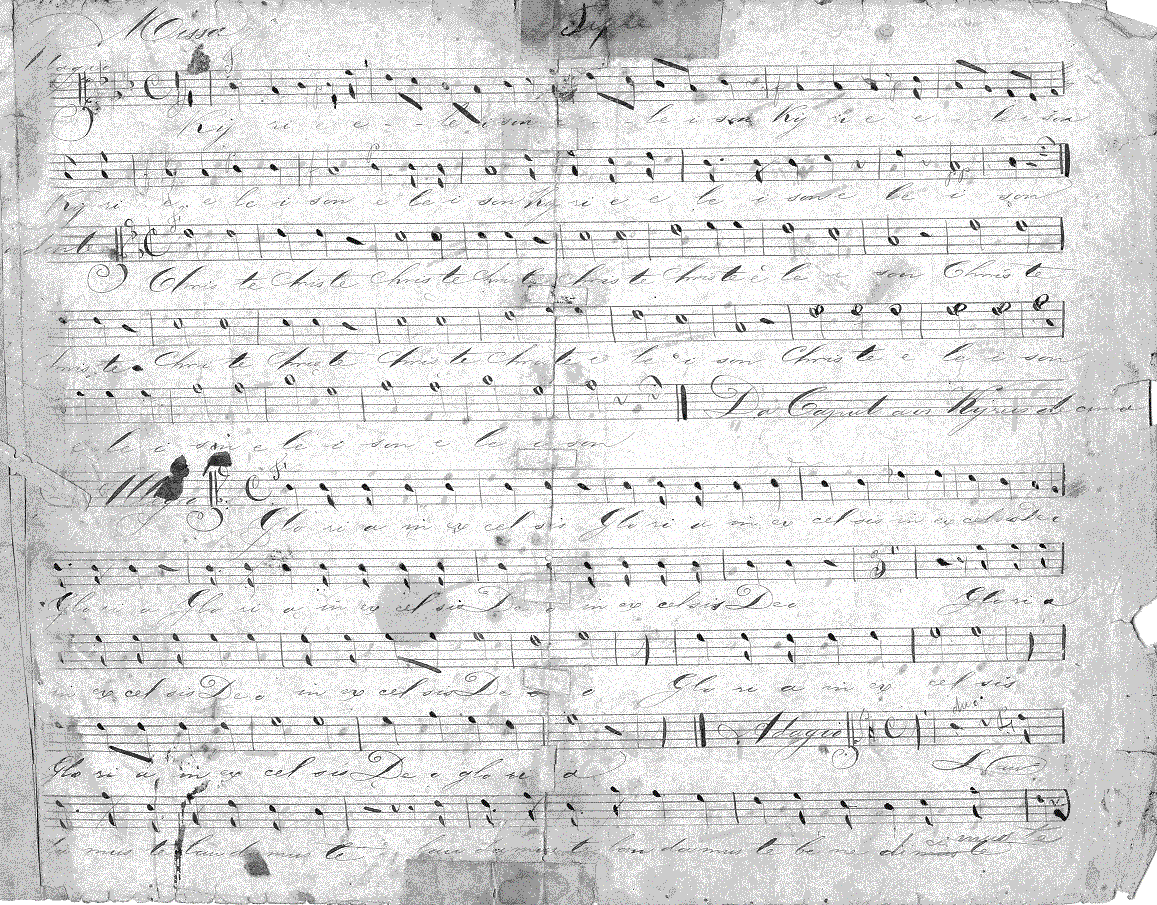 Missa Tiple
Kÿ ri e e - - le i son e - - le i son Kÿ ri e e - - le i son
Kÿ ri e e le i son e le i son Kÿ ri e e le i son e le i son
Chris te Christe Christe Christe Christe Christe e le i son Chris te
Chris te Chris te Christe Christe Christe e le i son Chris te e le i son
e le i son e le i son e le i son Da Caput
Glo ri a in ex cel sis Glo ri a in ex cel sis in ex celsis deo
Glo ri a Glo ri a in ex cel sis De o in ex celsis Deo Glori a
in ex cel sis De o in ex cel sis De - o Glo ri a in ex cel sis
Glo ri a in ex cel sis De o glo ri a Adagio Lau
da mus te lau da mus te lau damus te lau damus te be ne di mus te